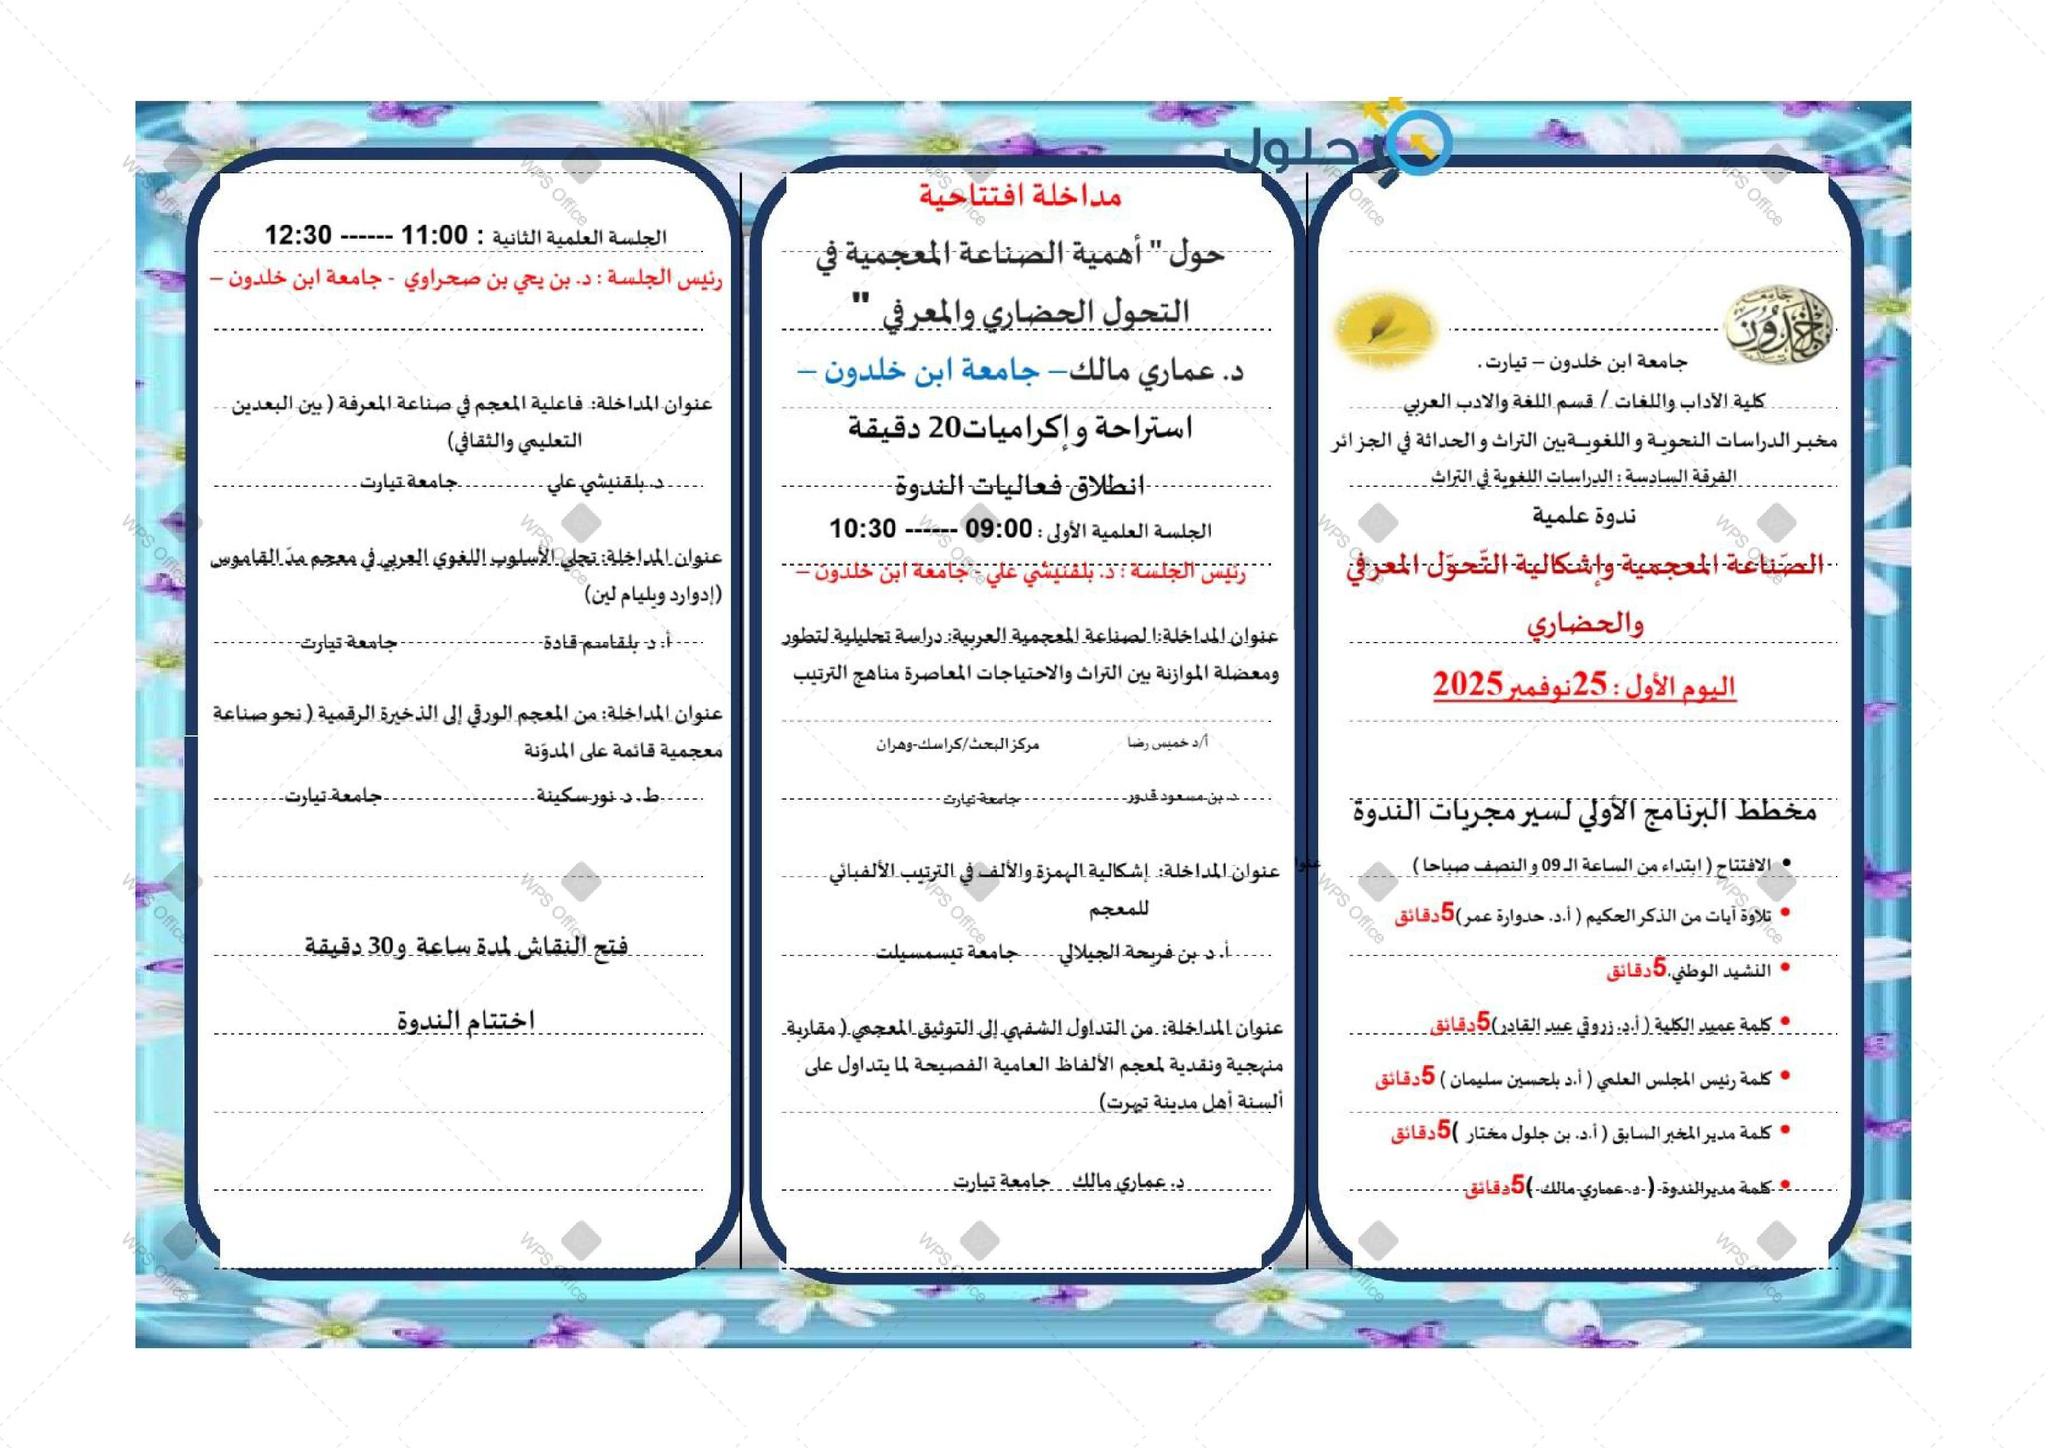 حلول
جامعة ابن خلدون – تيارت.
كلية الآداب واللغات / قسم اللغة والادب العربي
مخبر الدراسات النحوية واللغوية بين التراث والحداثة في الجزائر
الفرقة السادسة : الدراسات اللغوية في التراث
ندوة علمية
الصّناعة المعجمية وإشكالية التّحوّل المعرفي
والحضاري
اليوم الأول : 25نوفمبر2025
مخطط البرنامج الأولي لسير مجريات الندوة
• الافتتاح ( ابتداء من الساعة الـ 09 و النصف صباحا )
• تلاوة آيات من الذكر الحكيم ( أ.د. حدوارة عمر)5دقائق
• النشيد الوطني.5دقائق
• كلمة عميد الكلية ( أ.د. زروقي عبد القادر)5دقائق
• كلمة رئيس المجلس العلمي ( أ.د بلحسين سليمان ) 5دقائق
• كلمة مدير المخبر السابق ( أ.د. بن جلول مختار )5دقائق
• كلمة مدير الندوة ( د. عماري مالك )5دقائق
مداخلة افتتاحية
حول " أهمية الصناعة المعجمية في
التحول الحضاري والمعرفي "
د. عماري مالك– جامعة ابن خلدون –
استراحة وإكراميات20 دقيقة
انطلاق فعاليات الندوة
الجلسة العلمية الأولى : 09:00 ------ 10:30
رئيس الجلسة : د. بلقنيشي علي - جامعة ابن خلدون –
عنوان المداخلة:ا لصناعة المعجمية العربية: دراسة تحليلية لتطور
ومعضلة الموازنة بين التراث والاحتياجات المعاصرة مناهج الترتيب
أ/د خميس رضا مركز البحث/كراسك-وهران
د. بن مسعود قدور جامعة تيارت
عنوان المداخلة: إشكالية الهمزة والألف في الترتيب الألفبائي
للمعجم
أ. د بن فريحة الجيلالي جامعة تيسمسيلت
عنوان المداخلة: من التداول الشفهي إلى التوثيق المعجمي ( مقاربة
منهجية ونقدية لمعجم الألفاظ العامية الفصيحة لما يتداول على
ألسنة أهل مدينة تيهرت)
د. عماري مالك جامعة تيارت
الجلسة العلمية الثانية : 11:00 ------ 12:30
رئيس الجلسة : د. بن يحي بن صحراوي - جامعة ابن خلدون –
عنوان المداخلة: فاعلية المعجم في صناعة المعرفة ( بين البعدين
التعليمي والثقافي)
د. بلقنيشي علي جامعة تيارت
عنوان المداخلة: تجلي الأسلوب اللغوي العربي في معجم مدّ القاموس
(إدوارد ويليام لين)
أ. د بلقاسم قادة جامعة تيارت
عنوان المداخلة: من المعجم الورقي إلى الذخيرة الرقمية ( نحو صناعة
معجمية قائمة على المدوّنة
ط. د نور سكينة جامعة تيارت
فتح النقاش لمدة ساعة و30 دقيقة
اختتام الندوة
WPS Office